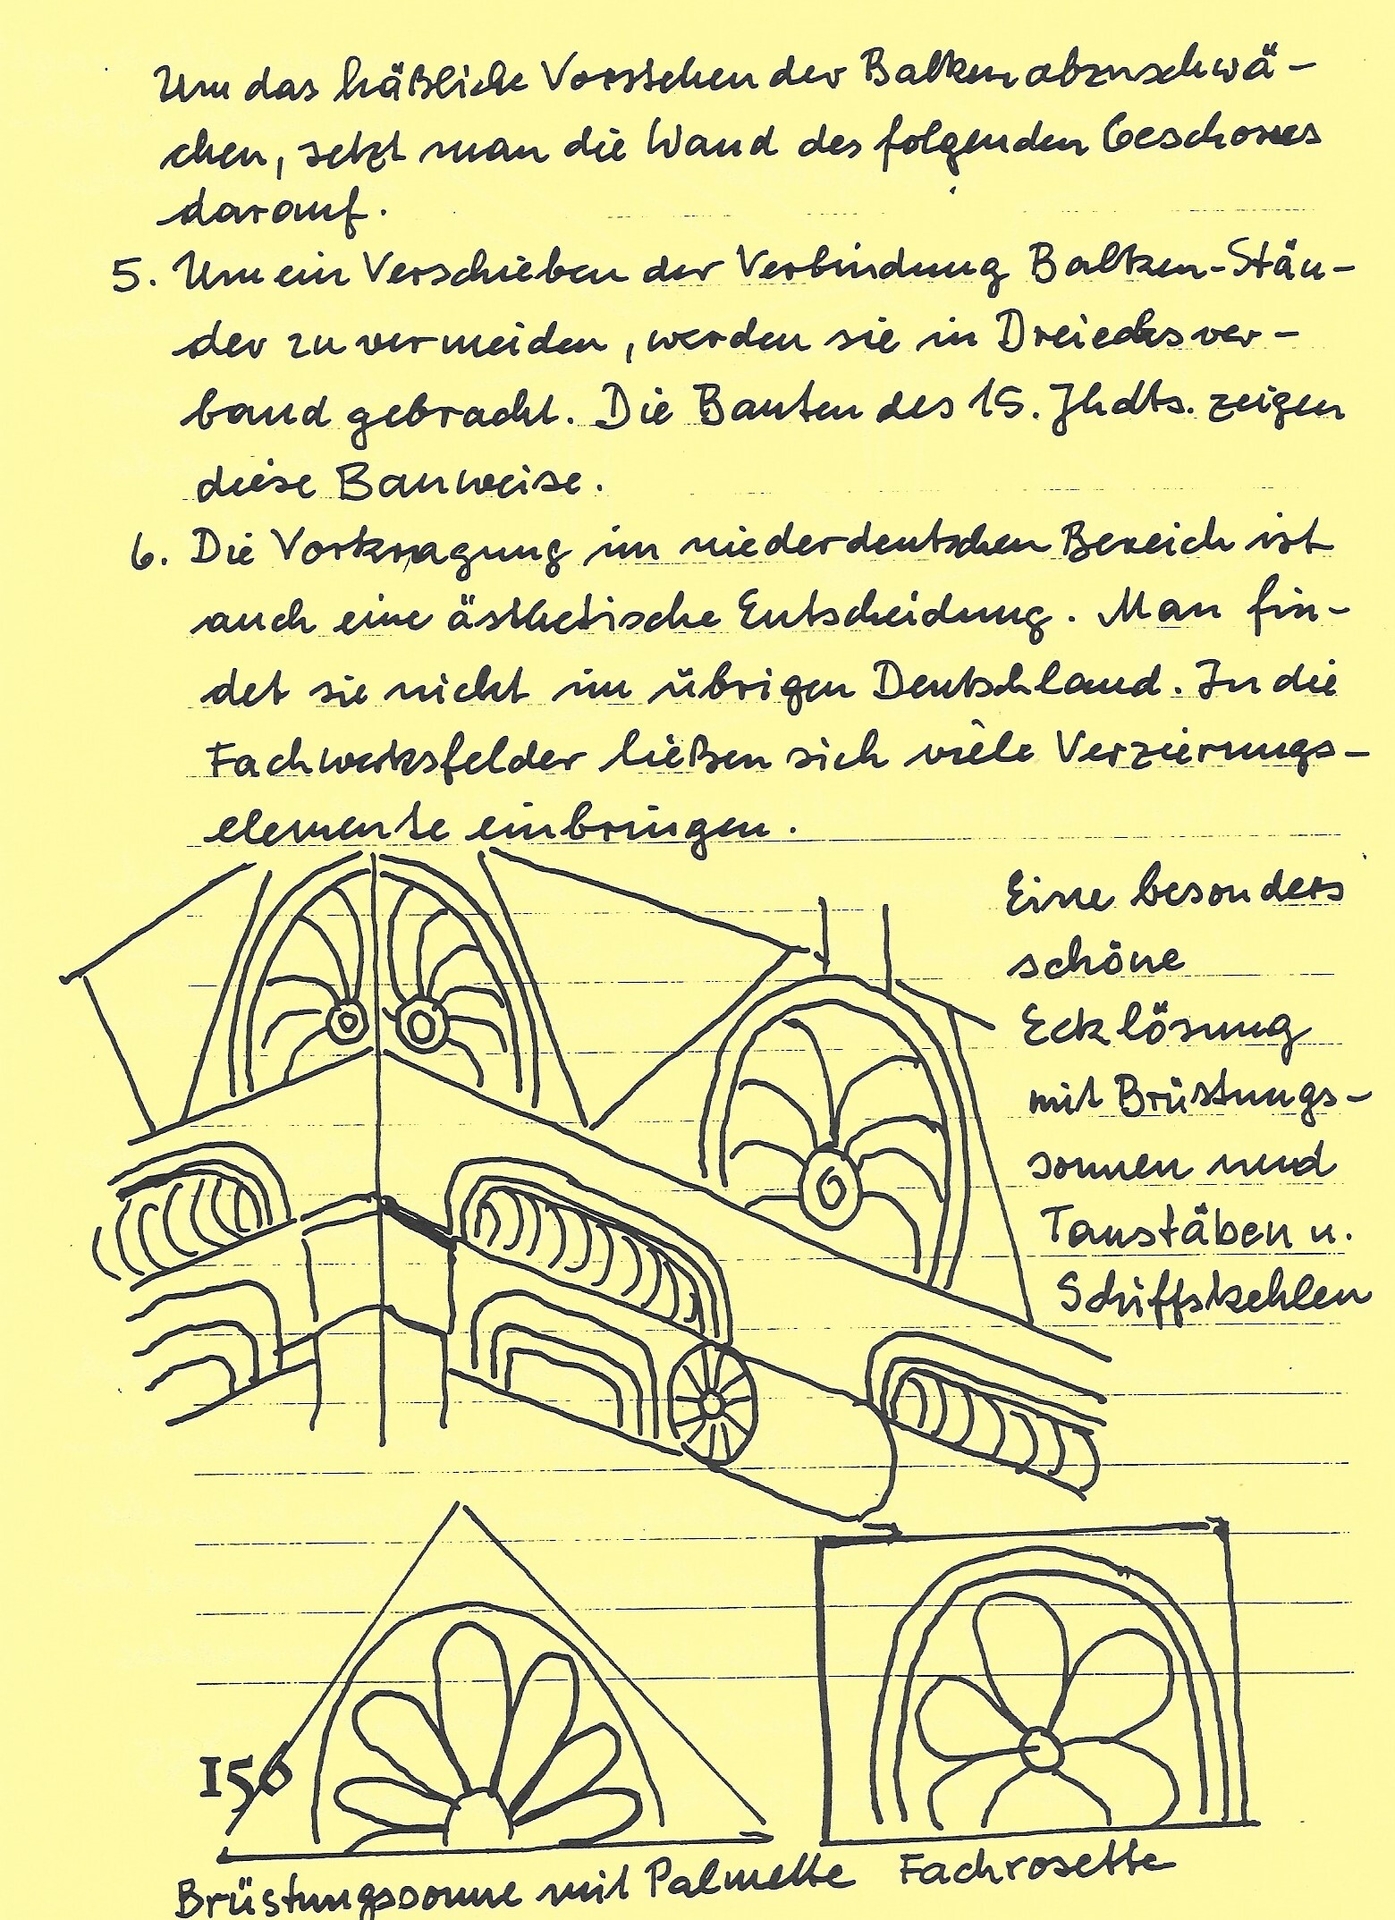 Um das häßliche Vorstehen der Balken abzuschwä-
chen, setzt man die Wand des folgenden Geschosses
darauf.
5. Um ein Verschieben der Verbindung Balken-Stän-
der zu vermeiden, werden sie in Dreiecksver-
band gebracht. Die Bauten des 15. Jhdts. zeigen
diese Bauweise.
6. Die Vorkragung im niederdeutschen Bereich ist
auch eine ästhetische Entscheidung. Man fin-
det sie nicht im übrigen Deutschland. In die
Fachwerksfelder ließen sich viele Verzierungs-
elemente einbringen.
Eine besonders
schöne
Ecklösung
mit Brüstungs-
sonnen und
Taustäben u.
Schiffskehlen
156
Brüstungssonne mit Palmette
Fachrosette